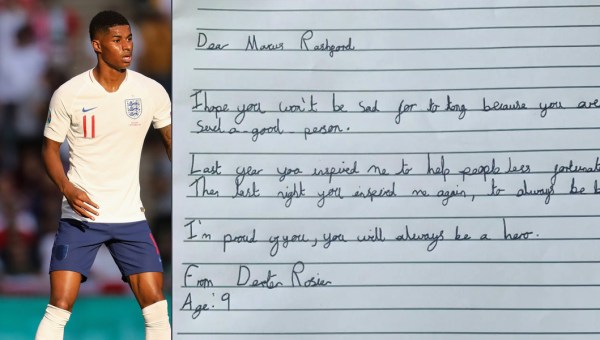 11
Dear Marcus Rashford
I hope you won't be sad for to long because you are
such a good person.
Last year you inspired me to help people less fortunate
Then last night you inspired me again, to always be
I'm proud of you, you will always be a hero.
From Dexter Rosier
Age: 9